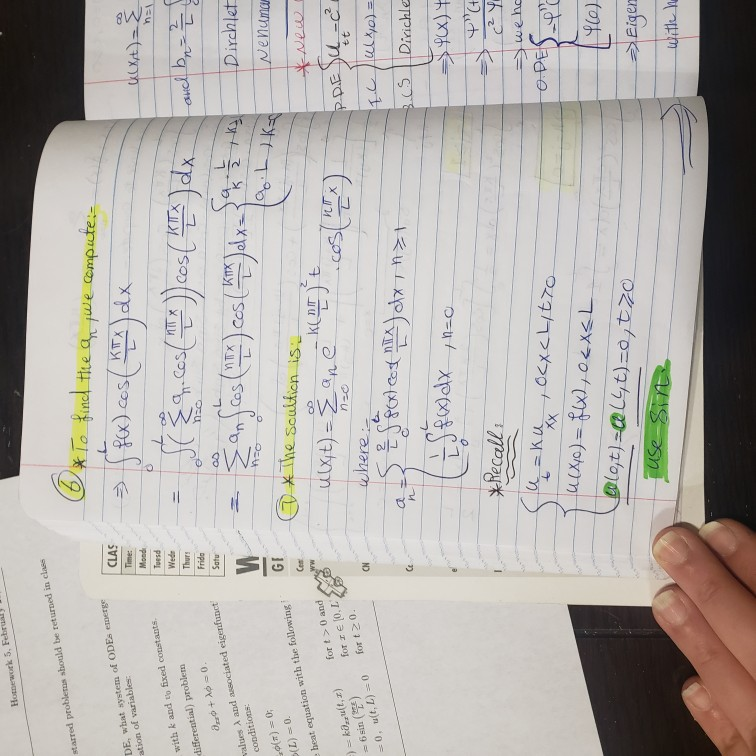 ⑥ * To find the aₙ, we compute:-
⇒ ∫₀ᴸ f(x) cos(kπx/L) dx
= ∫₀ᴸ (∑ₙ₌₀^∞ aₙ · cos(nπx/L)) cos(kπx/L) dx
= ∑ₙ₌₀^∞ aₙ ∫₀ᴸ cos(nπx/L) cos(kπx/L) dx = { aₖ · L/2 , k≥
a₀ · L , k=0
⑦ * The soultion is:
u(x,t) = ∑ₙ₌₀^∞ aₙ e^(-k(nπ/L)² t) · cos(nπx/L)
where:-
aₙ = { 2/L ∫₀ᴸ f(x) cos(nπx/L) dx , n≥1
1/L ∫₀ᴸ f(x) dx , n=0
* Recall:
{ uₜ = k uₓₓ , 0<x<L, t>0
u(x,0) = f(x) , 0≤x≤L
u(0,t) = u(L,t) = 0 , t≥0
use Sin.
⇒
u(x,t) = ∑ₙ₌₁^∞
and bₙ = 2/L ∫
Dirchlet
Nenuman
* New
P.D.E { uₜₜ - c²
I.C { u(x,0) =
B.C's { Dirichle
⇒ φ(x) ψ
⇒
⇒ we ha
O.D.E { -φ"(
φ(0)
⇒ Eigen
with
Homework 5, February
starred problems should be returned in class
DE, what system of ODEs emerge
ation of variables:
with k and v₀ fixed constants.
differential) problem
∂ₓₓφ + λφ = 0.
values λ and associated eigenfunct
conditions:
φ(π) = 0;
φ(L) = 0.
heat equation with the following
) = k∂ₓₓu(t, x) for t > 0 and
= 6 sin( for x ∈ [0, L
= 0, u(t, L) = 0 for t ≥ 0.
CLAS
Time:
Mond
Tuesd
Wedn
Thurs
Frida
Satu
W